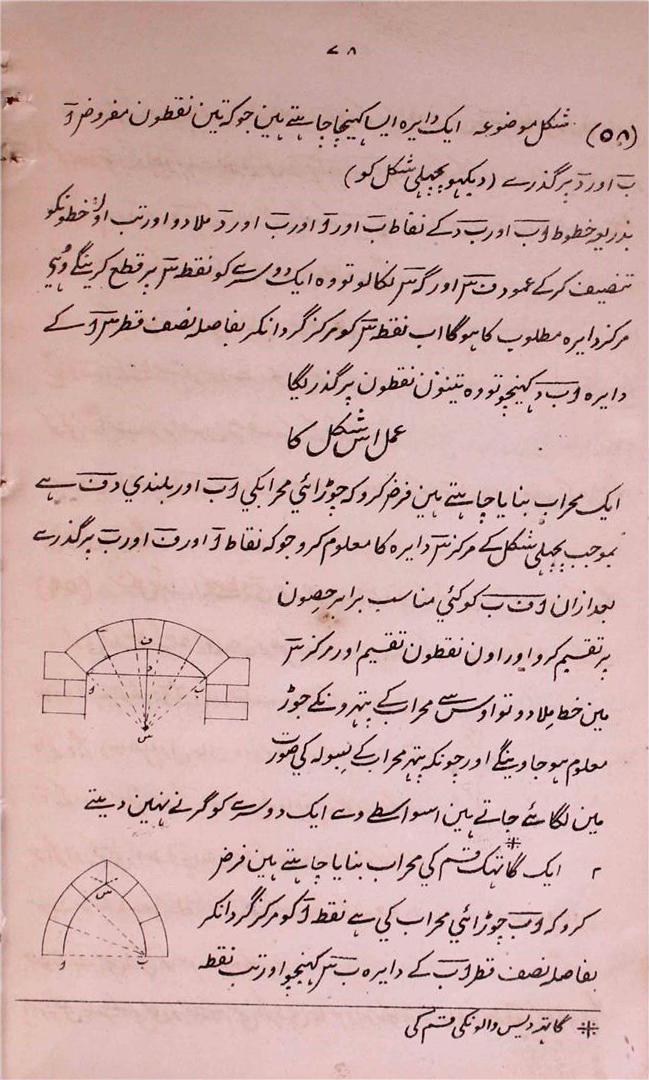 ۷۸
(۵۸) شکل موضوعہ ایک دایرہ ایسا کہینچا چاہتے ہین جو کہ تین نقطون مفروض وَ
بَ اور دَ پر گذرے (دیکہو پچہلی شکل کو)
بذریعہ خطوط وَبَ اور بَ دَ کے نقاط بَ اور وَ اور بَ اور دَ ملا دو اور تب اون خطونکو
تنصیف کرکے عمود فَ سَ اور گَ سَ نکالو تو وہ ایک دوسرے کو نقطہ سَ پر قطع کرینگے وُہی
مرکز دایرہ مطلوب کا ہوگا اب نقطہ سَ کو مرکز گردانکر بفاصلہ نصف قطر سَ وَ کے
دایرہ وَ بَ دَ کہینچو تو وہ تینون نقطون پر گذریگا
عمل اس شکل کا
ایک محراب بنایا چاہتے ہین فرض کرو کہ چوڑائي محرابکي وَ بَ اور بلندي دَ فَ ہے
بموجب پچہلی شکل کے مرکز سَ دایرہ کا معلوم کرو جو کہ نقاط وَ اور فَ اور بَ پر گذرے
بعد ازان وَ فَ بَ کو کئي مناسب برابر حصون
پر تقسیم کرو اور اون نقطون تقسیم اور مرکز سَ
مین خط ملا دو تو اوس سے محراب کے پتہرونکے جوڑ
معلوم ہو جاوینگے اور چونکہ پتہر محراب کے بسولہ کی صورت
مین لگائے جاتے ہین اسواسطے وے ایک دوسرے کو گرنے نہین دیتے
۲ ایک گاتہک* قسم کی محراب بنایا چاہتے ہین فرض
کرو کہ وَ بَ چوڑائي محراب کی ہے نقطہ وَ کو مرکز گردانکر
بفاصلہ نصف قطر وَ بَ کے دایرہ بَ سَ کہینچو اور تب نقطہ
* گاتہہ دیس والونکی قسم کی
ف
د
و
ب
س
س
و
ب